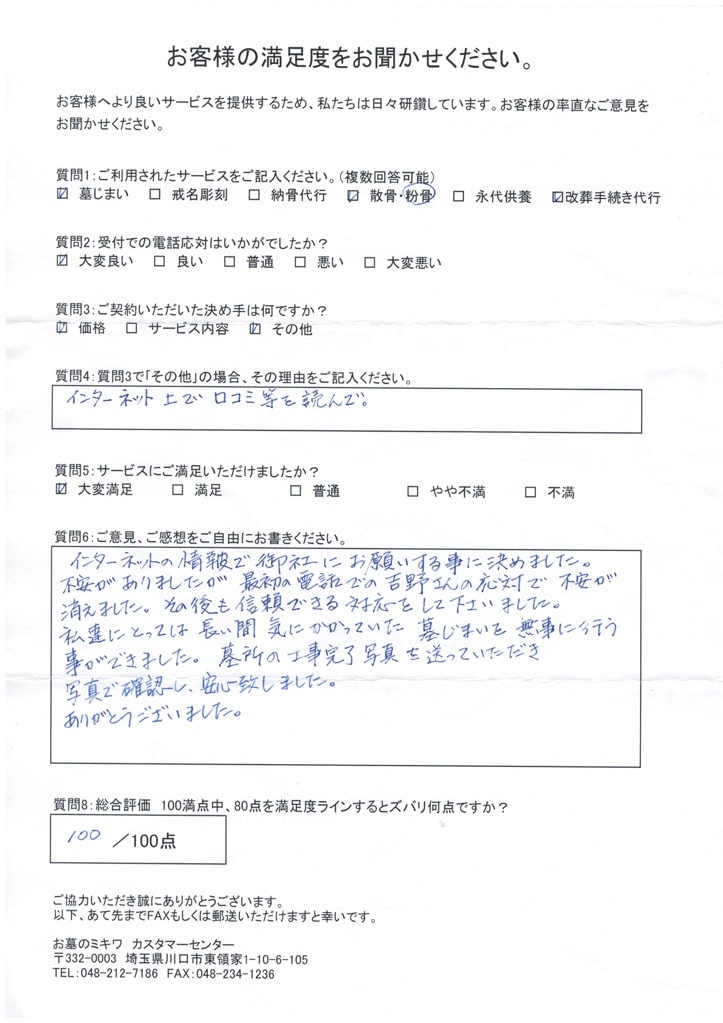 お客様の満足度をお聞かせください。
お客様へより良いサービスを提供するため、私たちは日々研鑽しています。お客様の率直なご意見を
お聞かせください。
質問1:ご利用されたサービスをご記入ください。(複数回答可能)
☑ 墓じまい ☐ 戒名彫刻 ☐ 納骨代行 ☑ 散骨・粉骨 ☐ 永代供養 ☑改葬手続き代行
質問2:受付での電話応対はいかがでしたか?
☑ 大変良い ☐ 良い ☐ 普通 ☐ 悪い ☐ 大変悪い
質問3:ご契約いただいた決め手は何ですか?
☑ 価格 ☐ サービス内容 ☑ その他
質問4:質問3で「その他」の場合、その理由をご記入ください。
インターネット上で口コミ等を読んで。
質問5:サービスにご満足いただけましたか?
☑ 大変満足 ☐ 満足 ☐ 普通 ☐ やや不満 ☐ 不満
質問6:ご意見、ご感想をご自由にお書きください。
インターネットの情報で御社にお願いする事に決めました。
不安がありましたが最初の電話での吉野さんの応対で不安が
消えました。その後も信頼できる対応をして下さいました。
私達にとっては長い間気にかかっていた墓じまいを無事に行う
事ができました。墓所の工事完了写真を送っていただき
写真で確認し、安心致しました。
ありがとうございました。
質問8:総合評価 100満点中、80点を満足度ラインするとズバリ何点ですか?
100 /100点
ご協力いただき誠にありがとうございます。
以下、あて先までFAXもしくは郵送いただけますと幸いです。
お墓のミキワ カスタマーセンター
〒332-0003 埼玉県川口市東領家1-10-6-105
TEL:048-212-7186 FAX:048-234-1236